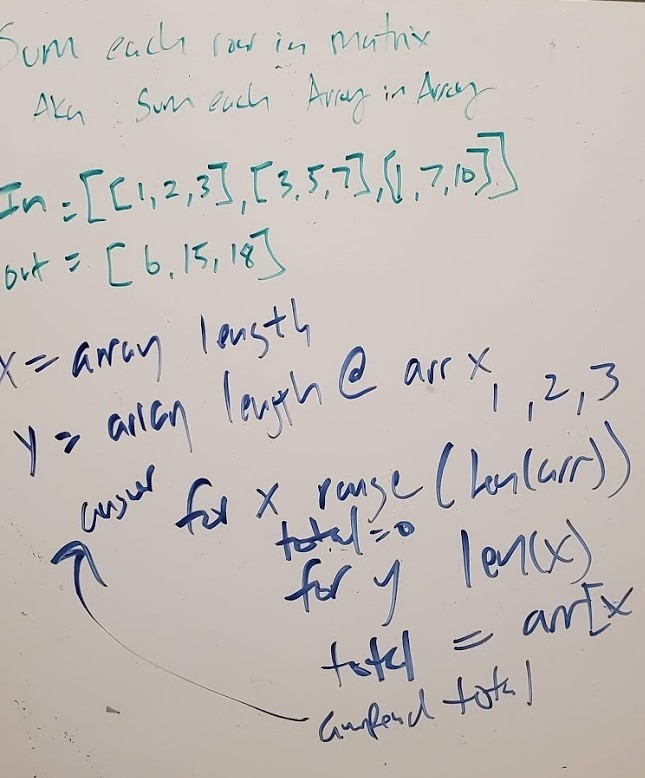 Sum each row in matrix
Aka Sum each Array in Array
In = [[1,2,3],[3,5,7],[1,7,10]]
out = [6,15,18]
X = array length
y = array length @ arr x
1, 2, 3
answer
for x range (len(arr))
total=0
for y len(x)
total = arr[x
append total